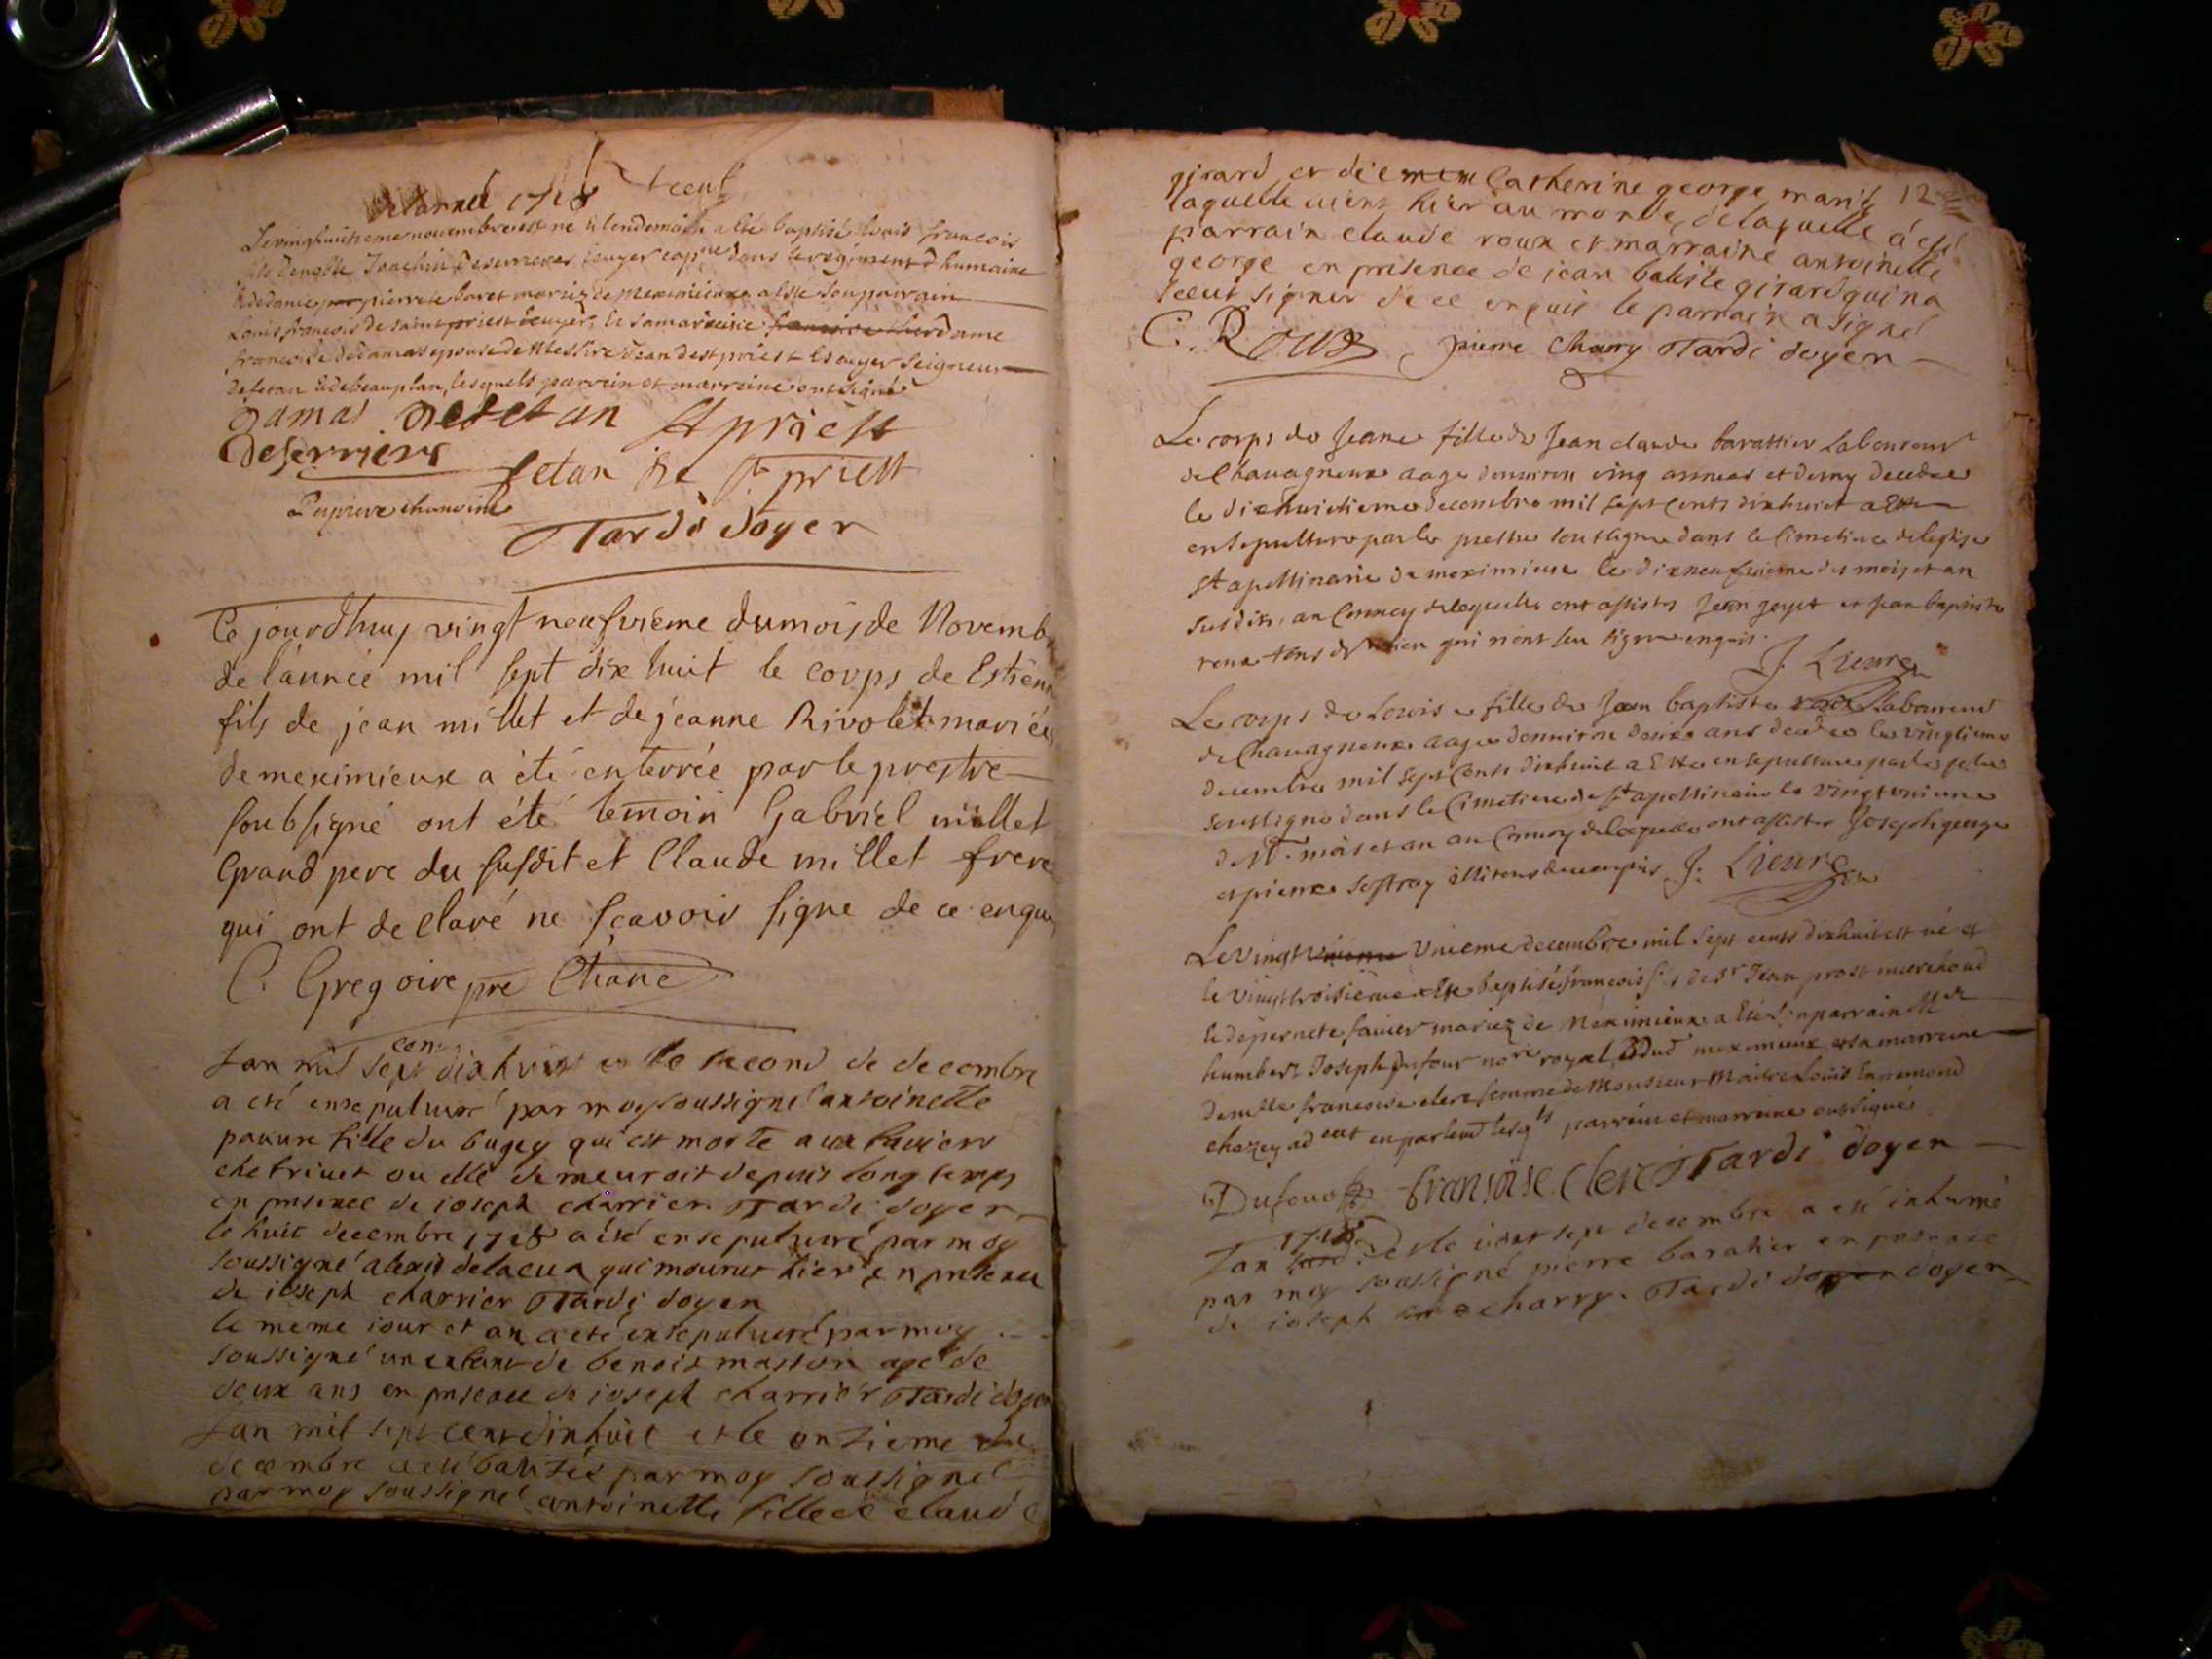 Lannée 1718
Le vinghuitieme novembre est né le lendemain a esté baptisé Louis francois
fils de noble Joachim Deserrieres ecuyer cap.ne dans le regiment d humaine
Et de dame pierrete baret mariez de meximieux a esté son parrain
Louis francois de saint priest ecuyer, Et sa marreine dame
francoise de damas epouse de Messire Jean de st priest Ecuyer Seigneur
de fetan Et de beauplan, lesquels parrein et marreine ont signé
damas de fetan St priest
Deserriers fetan de St priest
chanoine
Tardi doyen
Ce jourdhuy vingt neufvieme du mois de Novemb
de l'année mil sept dix huit le corps de Estien
fils de jean millet et de jeanne Rivolet mariés
de meximieux a été enterrée par le prestre
soubsigné ont été temoin Gabriel millet
Grand pere du susdit et Claude millet frere
qui ont declaré ne sçavoir signe de ce enquis
C. Gregoire pre Chane
Lan mil sept cen dixhuit et le second de decembre
a eté ensepulturé par moy soussigné antoinette
pauvre fille du bugey qui est morte aux
chetrivet ou elle demeuroit depuis long temps
en presence de ioseph charrier Tardi doyen
le huit decembre 1718 a été ensepulturé par moy
soussigné alexis delacua qui mourut hier en presence
de ioseph charrier Tardi doyen
le meme iour et an a eté ensepulturé par moy
soussigné un enfant de benoit masson agé de
deux ans en presence de ioseph charrier Tardi doyen
Lan mil sept cent dixhuit et le onzieme de
decembre a eté batisée par moy soussigné
par moy soussigné antoinette fille de claude
girard et de Catherine george mariés 12
laquelle vient hier au monde, de laquelle a esté
parrain claude roux et marraine antoinette
george en presence de jean batiste girard qui na
sceut signer de ce enquis le parrain a signé
C. Roux pierre Charry Tardi doyen
Le corps de Jeane fille de Jean claude barattier laboureur
de Chavagneux aagé denviron cinq années et demy decedee
le dixhuictieme decembre mil sept cents dixhuict a esté
ensepulturé par le prestre soussigné dans le cimetiere de leglise
St apollinaire de meximieux le dixneufvieme des mois et an
susdits, au convoy de laquelle ont assistés Jean et Jean baptiste
roux qui n'ont sceu signer enquis.
J. Lieure
Le corps de Louise fille de Jean baptiste roux laboureur
de Chavagneux aagée denviron deux ans decedee le vingtieme
decembre mil sept cents dixhuit a esté ensepulturé par le prestre
soussigné dans le Cimetiere de St apollinaire le vingt unieme
mois et an au convoy de laquelle ont assistés Joseph george
et pierre illiterés de ce enquis J. Lieure
Le vingt Unieme decembre mil sept cents dixhuit est né et
le vingt troisieme a esté baptisé francois fils de Sr Jean prost marchand
Et de pernete mariez de Meximieux a eté son parrain Me
humbert Joseph Dufour no.re royal dud meximieux et sa marreine
dem.lle francoise clere femme de Monsieur Maitre Louis Ennemond
chazey ad.cat en parlemt lesq.ls parrein et marreine ont signé
Dufour fransoise clere Tardi doyen
Lan 1718 et le vint sept decembre a eté inhumé
par moy soussigné pierre baratier en presence
de ioseph charry. Tardi doyen